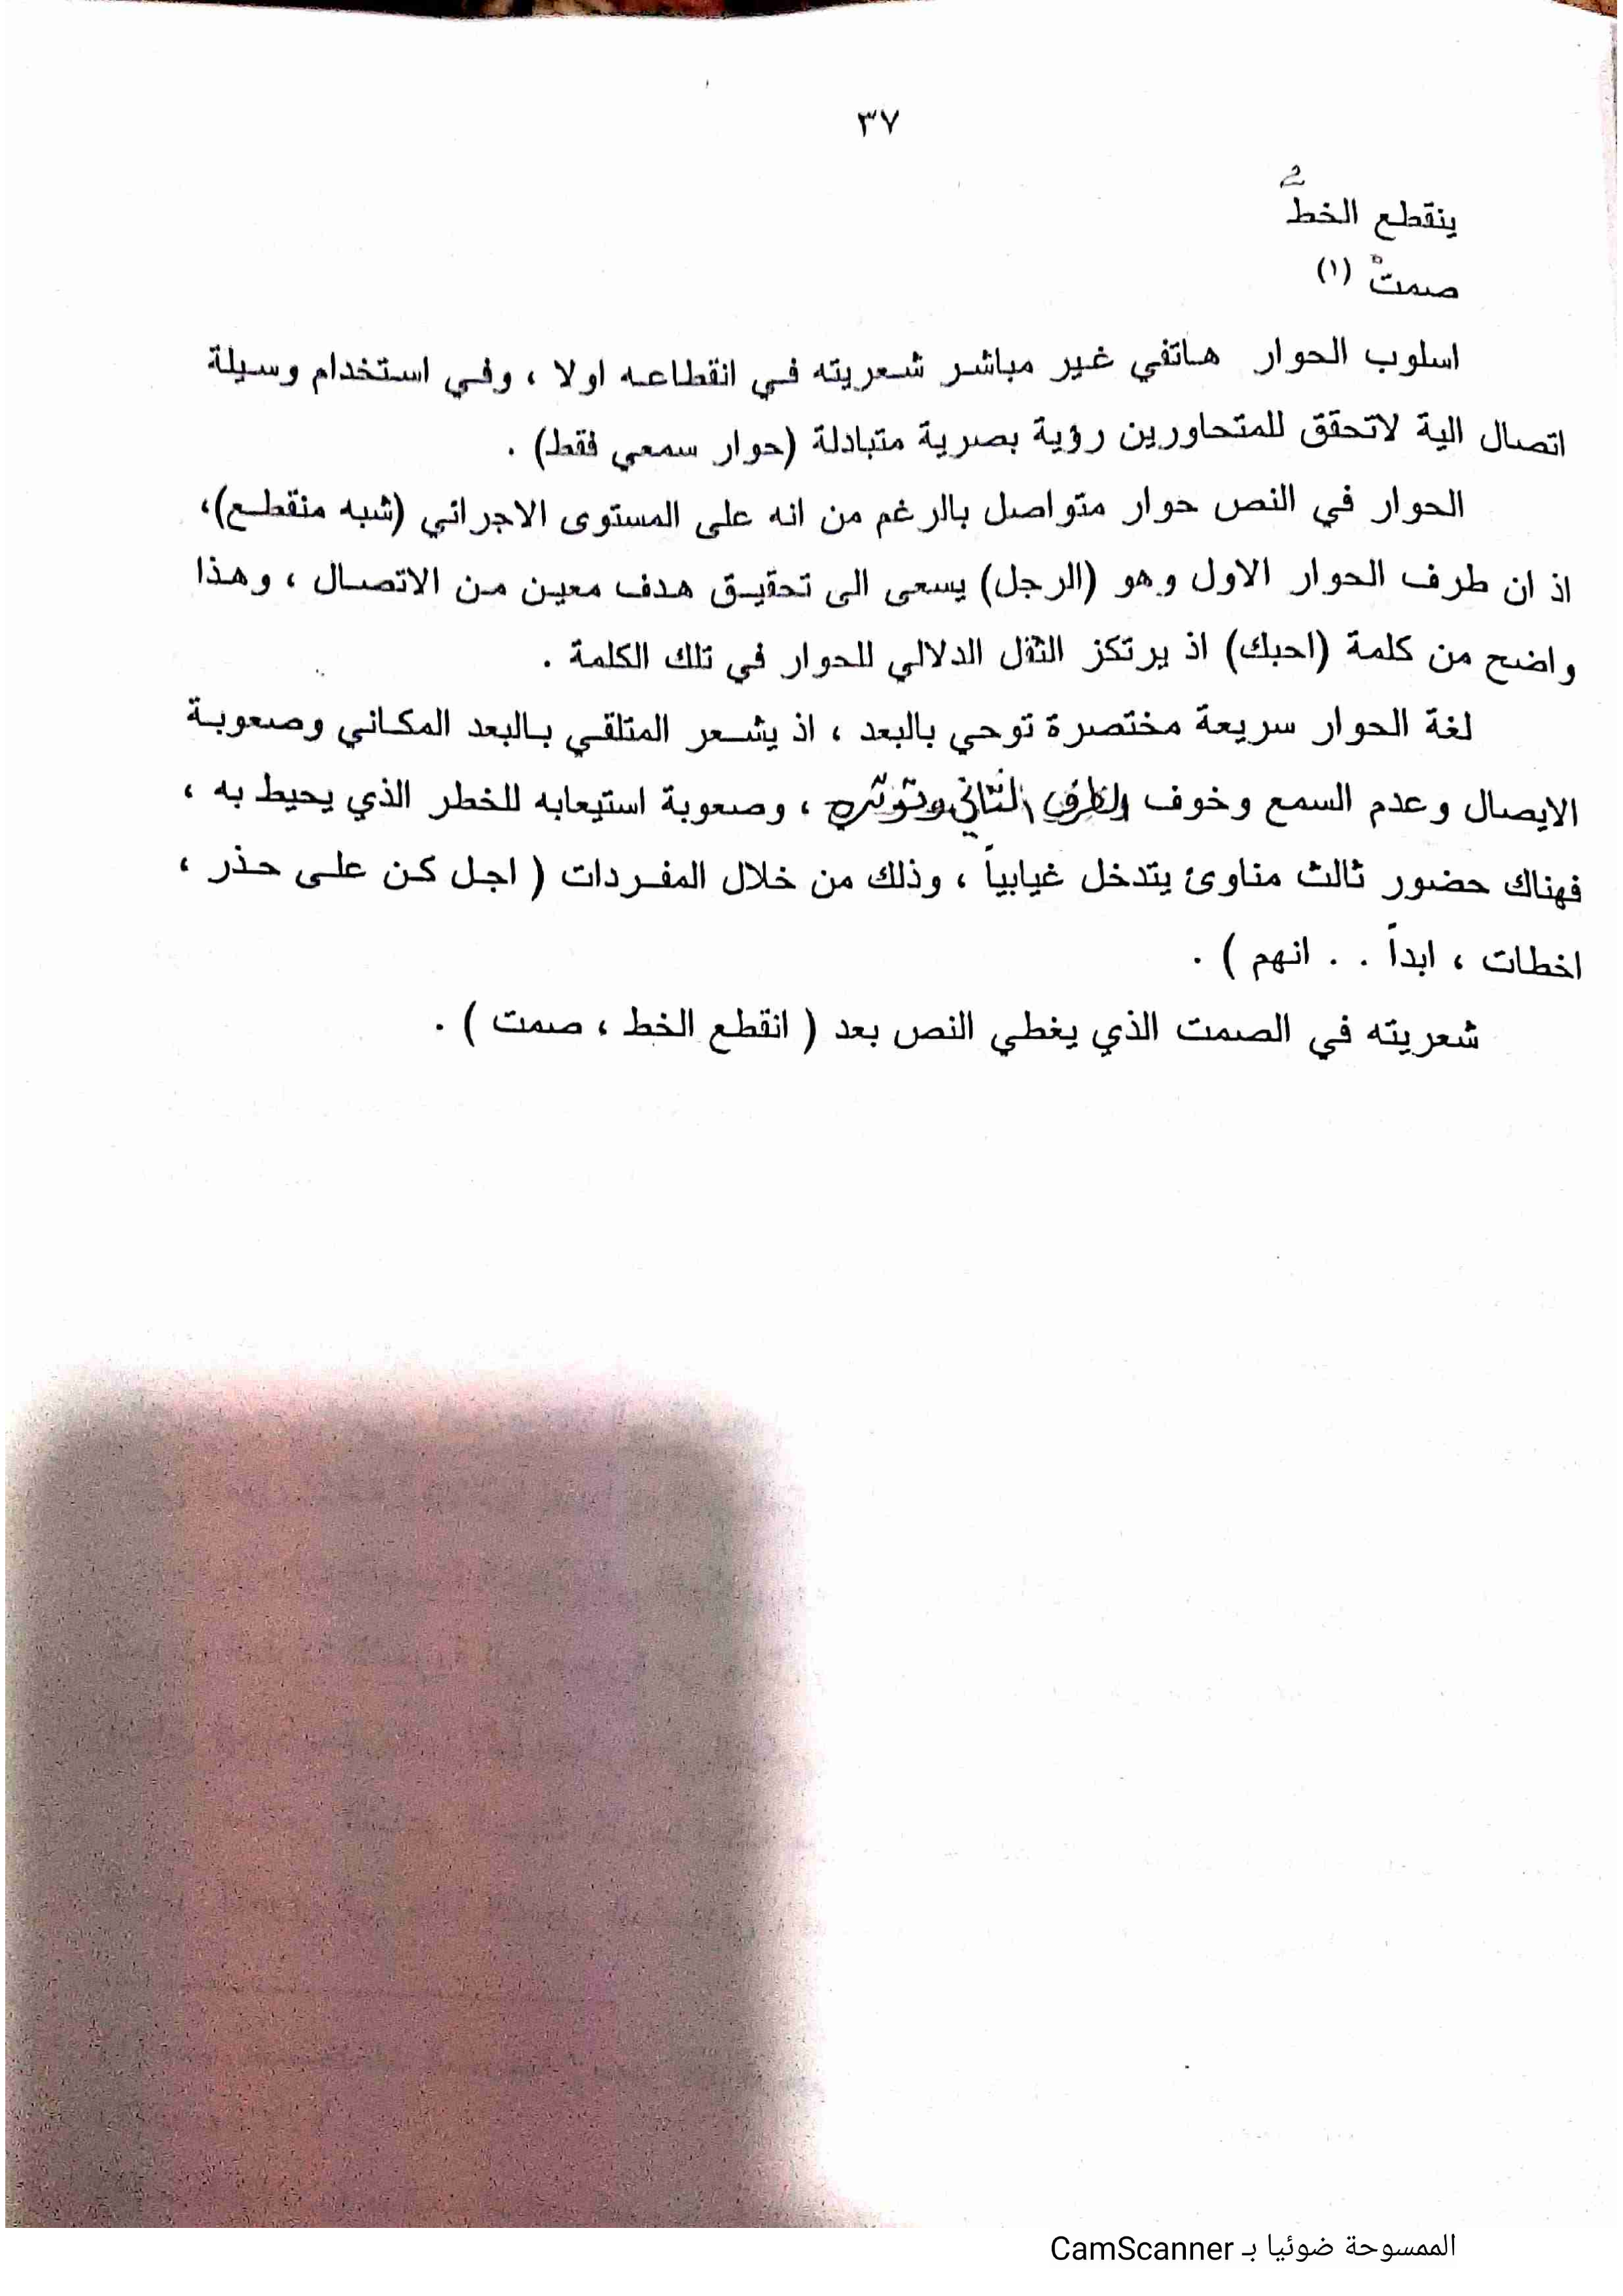 ٣٧
ينقطع الخطُّ
صمتْ (١)
اسلوب الحوار هاتفي غير مباشر شعريته في انقطاعه اولا ، وفي استخدام وسيلة
اتصال الية لاتحقق للمتحاورين رؤية بصرية متبادلة (حوار سمعي فقط) .
الحوار في النص حوار متواصل بالرغم من انه على المستوى الاجرائي (شبه منقطع)،
اذ ان طرف الحوار الاول وهو (الرجل) يسعى الى تحقيق هدف معين من الاتصال ، وهذا
واضح من كلمة (احبك) اذ يرتكز الثقل الدلالي للحوار في تلك الكلمة .
لغة الحوار سريعة مختصرة توحي بالبعد ، اذ يشعر المتلقي بالبعد المكاني وصعوبة
الايصال وعدم السمع وخوف الطرف الثاني وتوتره ، وصعوبة استيعابه للخطر الذي يحيط به ،
فهناك حضور ثالث مناوئ يتدخل غيابياً ، وذلك من خلال المفردات ( اجل كن على حذر ،
اخطات ، ابداً . . انهم ) .
شعريته في الصمت الذي يغطي النص بعد ( انقطع الخط ، صمت ) .
الممسوحة ضوئيا بـ CamScanner